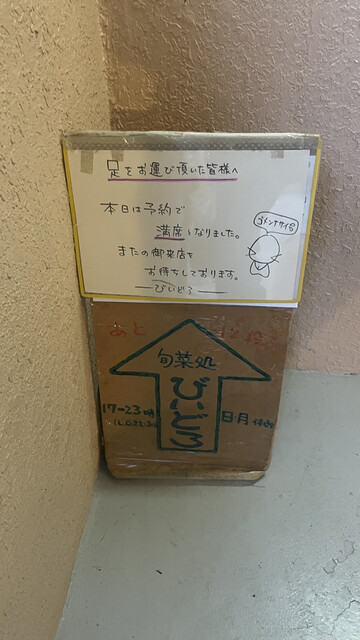 足をお運び頂いた皆様へ
本日は予約で
満席となりました。
またの御来店を
お待ちしております。
びいどろ
ゴメンナサイ
あと
旬菜処
びいどろ
17-23時
日・月 休み